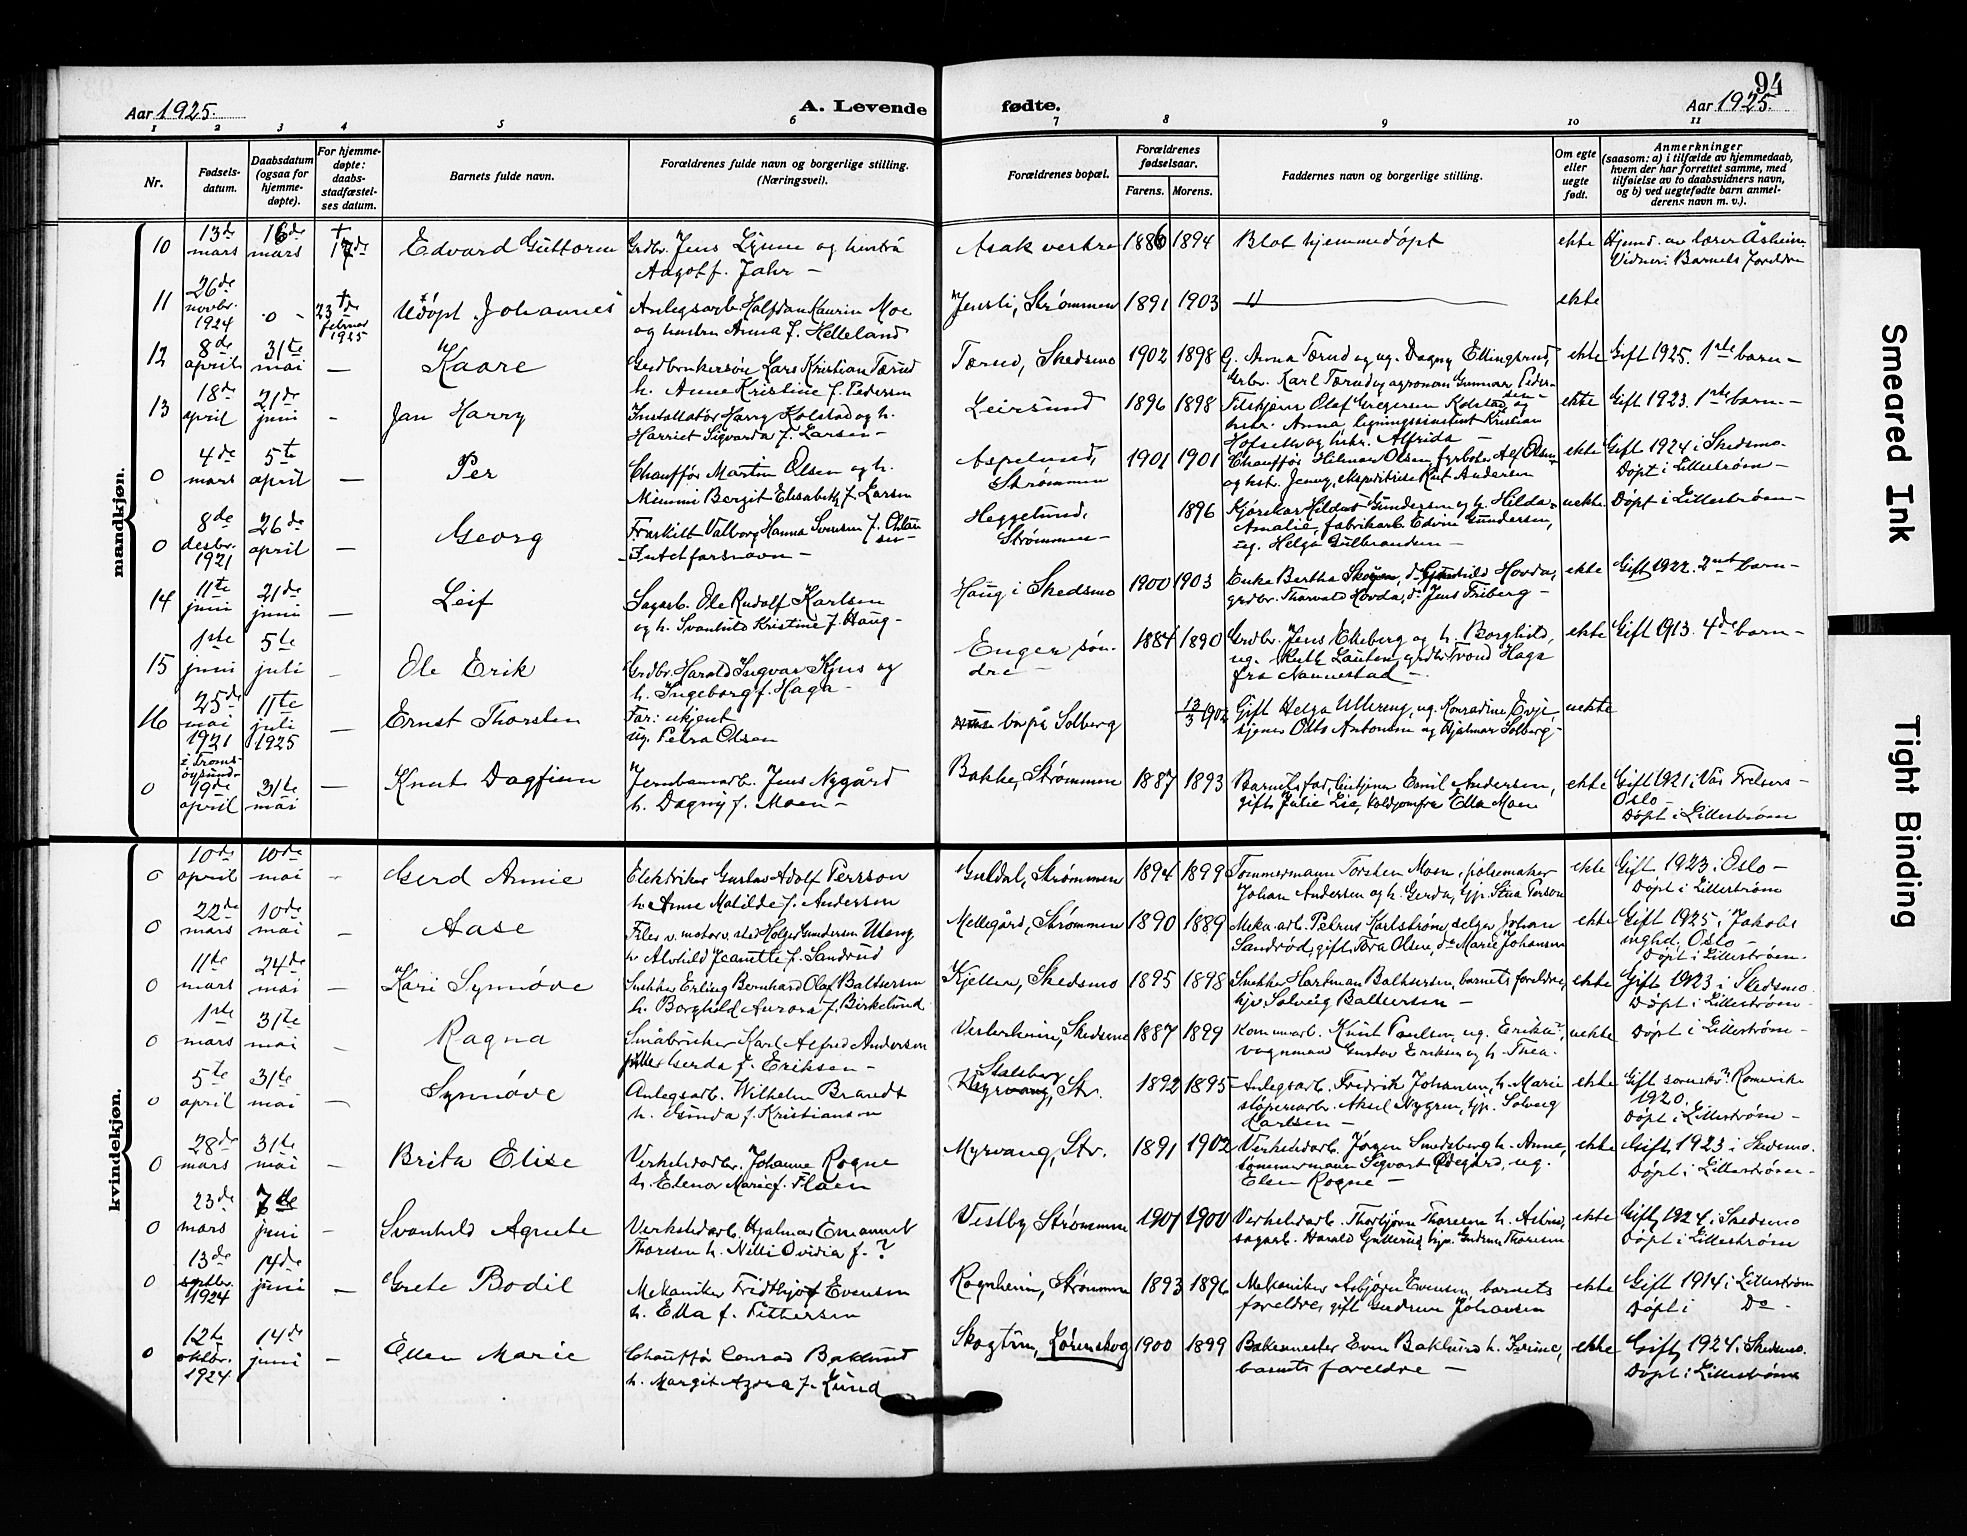 94
Aar 1925.
A. Levende
fødte.
Aar 1925.
1 2 3 4 5 6 7 8 9 10 11
Nr.
Fødsels-
datum.
Daabsdatum
(ogsaa for
hjemme-
døpte).
For hjemme-
døpte:
daabs-
stadfæstel-
ses datum.
Barnets fulde navn.
Forældrenes fulde navn og borgerlige stilling.
(Næringsvei).
Forældrenes bopæl.
Forældrenes
fødselsaar.
Farens. Morens.
Faddernes navn og borgerlige stilling.
Om egte
eller
uegte
født.
Anmerkninger
(saasom: a) i tilfælde av hjemmedaab,
hvem der har forrettet samme, med
tilføielse av to daabsvidners navn,
og b) ved uegtefødte barn anmel-
derens navn m. v.).
mandkjøn.
10
13de
mars
16de
mars
†
17de
Edvard Guttorm
Grdbr. Jens og hustru
Aagot f. Jahr –
Asak vestre
1886 1894
Blot hjemmedøpt
ekte
Hjemd. av lærer Åsheim
Vidner: Barnets foreldre
11
26de
novbr.
1924
o
†
23de
februar
1925
Udøpt "Johannes"
Anlegsarb. Halfdan Kaurin Moe
og hustru Anna f. Helleland
Jensli, Strømmen
1891 1903
ekte
12
8de
april
31te
mai
–
Kaare
Gardbrukersøn Lars Kristian Tærud
h. Anne Kristine f. Pedersen
Tærud, Skedsmo
1902 1898
G. Anna Tærud og ug. Dagny Ellingsrud,
Grbr. Karl Tærud og agronom Gunnar Peder-
sen –
ekte
Gift 1925. 1ste barn –
13
18de
april
21de
juni
–
Jan Harry
Installatør Harry Kolstad og h.
Harriet Sigvarda f. Larsen –
Leirsund
1896 1898
Olaf Gregersen Kolstad og
hstr. Anna, ligningsassistent Kristian
Hofseth og hstr. Alfrida –
ekte
Gift 1923. 1ste barn. –
0
4de
mars
5te
april
–
Per
Chauffør Martin Olsen og h.
Mimmi Bergit Elisabeth f. Larsen
Aspelund,
Strømmen
1901 1901
Chauffør Hilmar Olsen, fyrbøter Alf Olsen
og hstr. Jenny, ekspeditrise Rut Andersen
ekte
Gift 1924 i Skedsmo.
Døpt i Lillestrøm –
0
8de
desbr.
1921
26de
april
–
Georg
Fraskilt Valborg Hanna Svensen f.
Intet farsnavn –
Heggelund,
Strømmen –
1896
Kjørekar Hildus Gundersen og h. Hilda
Amalie, fabrikarb. Edvin Gundersen,
ug. Helga Gulbrandsen –
uekte
Døpt i Lillestrøm –
14
11te
juni
21de
juni
–
Leif
Sagarb. Ole Rudolf Karlsen
og h. Svanhild Kristine f. Haug –
Haug i Skedsmo
1900 1903
Enke Bertha Skogen, do Gunhild Hovda,
grdbr. Thorvald Hovda, do Jens Friberg –
ekte
Gift 1922. 2net barn –
15
1ste
juni
5te
juli
–
Ole Erik
Grdbr. Harald Ingvar Kjus og
h. Ingeborg f. Haga –
Enger søn-
dre –
1884 1890
Grdbr. Jens Ekeberg og h. Borghild,
ug. Ruth Lauten, grdbr. Trond Haga
fra Nannestad –
ekte
Gift 1913. 4de barn –
16
25de
mai
1921
i Troms-
øysund –
11te
juli
1925
–
Ernst Thorsten
Far: ukjent
ug. Petra Olsen
bor på Solberg
13/3 1902
Gift Helga Ullereng, ug. Konradine Evje,
tjener Odts Antonsen og Hjalmar Solberg –
uekte
0
19de
april
31te
mai
–
Knut Dagfinn
Jernbanearb. Jens Nygård
h. Dagny f. Moen –
Bakke, Strømmen
1887 1893
Barnets far, Emil Andersen,
gift Julie Lie, koldjomfru Ella Moen
ekte
Gift 1921 i Vår Frelsers –
Oslo –
Døpt i Lillestrøm
kvindekjøn.
0
10de
april
10de
mai
–
Gerd Annie
Elektriker Gustav Adolf Persson
h. Anne Matilde f. Andersen
Guldal, Strømmen
1894 1899
Tømmermann Torsten Moen, pølsemaker
Johan Andersen og h. Gerda, tjp. Stina Persson
ekte
Gift 1923 i Oslo –
Døpt i Lillestrøm
0
22de
mars
10de
mai
–
Aase
Filer v. motorv.sted Holger Gundersen
h. Alvhild Jeanette f. Sandrud
Mellegård, Strømmen
1890 1889
Mek. arb. Petrus Karlstrøm, selger Johan
Sandrød, gift Tora Olsen, do Marie Johansen
ekte
Gift 1925 i Jakobs
Oslo –
Døpt i Lillestrøm.
0
11te
mars
24de
mai
–
Kari Synnøve
Snekker Erling Bernhard Olaf Baltsersen
h. Borghild Aurora f. Birkelund
Kjeller, Skedsmo
1895 1898
Snekker Hartman Baltsersen, barnets foreldre,
tjp. Solveig Baltsersen –
ekte
Gift 1923 i Skedsmo.
Døpt i Lillestrøm –
0
1ste
mars
31te
mai
–
Ragna
Småbruker Karl Alfred Andersen
Gerda f. Eriksen –
Vesterheim, Skedsmo
1887 1899
Kommunarb. Knut Paulsen, ug. Erikka,
vognmand Gustav Eriksen og h. Thea.
uekte
Døpt i Lillestrøm –
0
5te
april
31te
mai
–
Synnøve
Anlegsarb. Wilhelm Brandt
h. Gunda f. Kristiansen
Stalsberg
Str.
1892 1895
Anlegsarb. Fredrik Johansen, h. Marie
støperiarb. Aksel Nygren, tjp. Solveig
Karlsen –
ekte
Gift sorenskr. Romerike
1920.
Døpt i Lillestrøm –
0
28de
mars
31te
mai
–
Brita Elise
Verkstedarb. Johannes Rogne
h. Elenor Marie f. Flaen
Myrvang, Str.
1891 1902
Verkstedarb. Jørgen Smedsberg h. Anna,
tømmermann Sigvart Ødegård, ug.
Elen Rogne –
ekte
Gift 1923 i Skedsmo.
Døpt i Lillestrøm –
0
23de
mars
7de
juni
–
Svanhild Agnete
Verkstedarb. Hjalmar Emanuel
Thoresen h. Nelli Ovidia f. ?
Vestby Strømmen
1901 1900
Verkstedarb. Thorbjørn Thoresen h. Astrid,
sagarb. Harald Gulliksrud, tjp. Gudrun Thoresen
ekte
Gift 1924 i Skedsmo
Døpt i Lillestrøm
0
13de
septbr.
1924
14de
juni
–
Grete Bodil
Mekaniker Fridthjof Evensen
h. Ella f. Pettersen
Rognheim, Strømmen
1893 1896
Mekaniker Asbjørn Evensen, barnets
foreldre, gift Gudrun Johansen
ekte
Gift 1914 i Lillestrøm
Døpt i Do –
0
12te
oktbr.
1924
14de
juni
–
Ellen Marie
Chauffør Conrad Baklund
h. Margit Agora f. Lund
Skogtun, Lørenskog
1900 1899
Bakermester Even Baklund h. Trine,
barnets foreldre –
ekte
Gift 1924 i Skedsmo.
Døpt i Lillestrøm
Smeared Ink
Tight Binding